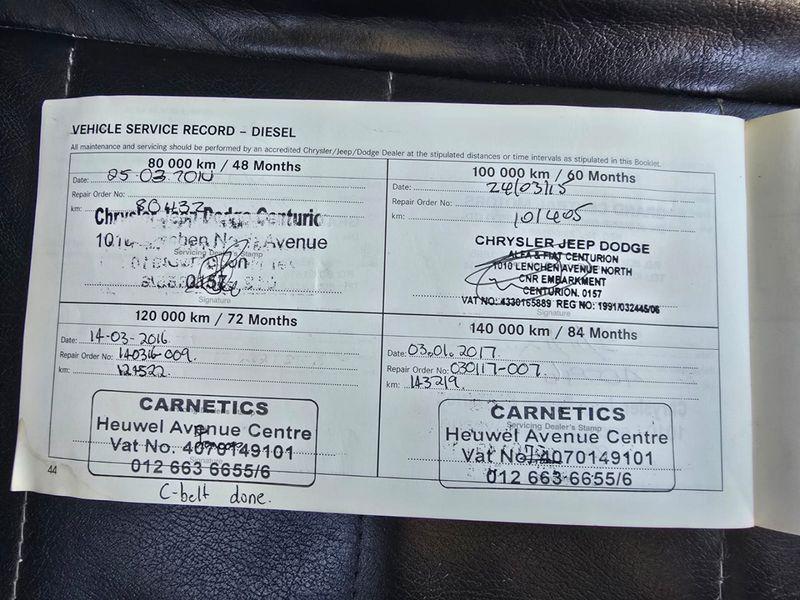 VEHICLE SERVICE RECORD – DIESEL
All maintenance and servicing should be performed by an accredited Chrysler/Jeep/Dodge Dealer at the stipulated distances or time intervals as stipulated in this Booklet.
80 000 km / 48 Months
Date: 05-03-2014
Repair Order No:
km: 80432
Chrysler Jeep Dodge Centurion
1010 Lenchen North Avenue
Servicing Dealer's Stamp
0157
Signature
100 000 km / 60 Months
Date: 24/03/15
Repair Order No.
km: 101405
CHRYSLER JEEP DODGE
ALFA & FIAT CENTURION
1010 LENCHEN AVENUE NORTH
CNR EMBARKMENT
CENTURION. 0157
VAT NO: 4330165889 REG NO: 1991/032445/06
Signature
120 000 km / 72 Months
Date: 14-03-2016
Repair Order No: 140316-009.
km: 121522
CARNETICS
Heuwel Avenue Centre
Vat No. 4070149101
Signature
012 663 6655/6
C-belt done.
140 000 km / 84 Months
Date: 03.01.2017
Repair Order No: 030117-007
km: 143219
CARNETICS
Servicing Dealer's Stamp
Heuwel Avenue Centre
Vat No. 4070149101
012 663 6655/6
44